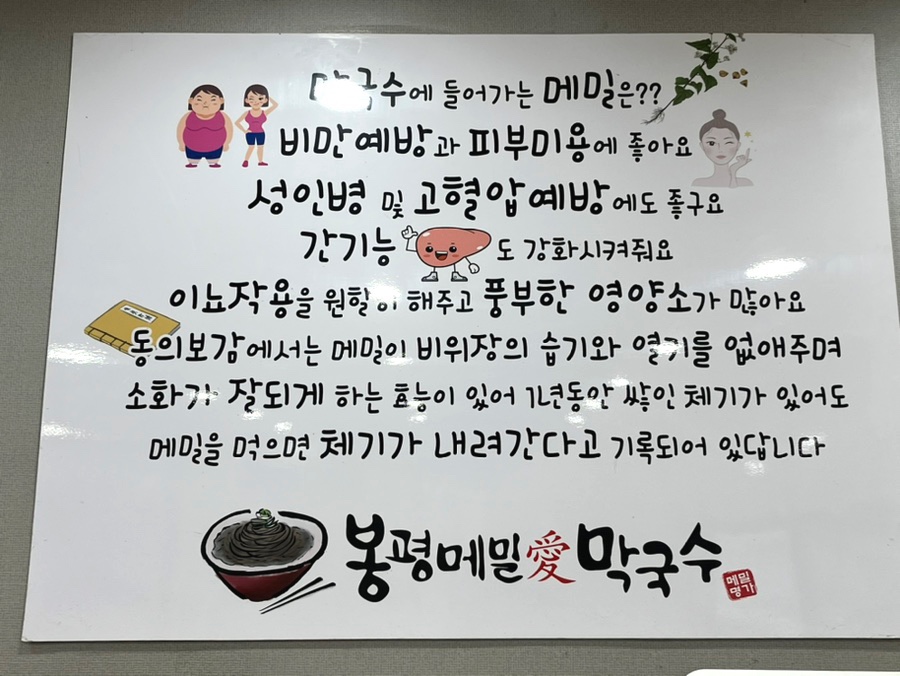 막국수에 들어가는 메밀은??
비만예방과 피부미용에 좋아요
성인병 및 고혈압예방에도 좋구요
간기능도 강화시켜줘요
이뇨작용을 원할히 해주고 풍부한 영양소가 많아요
동의보감에서는 메밀이 비위장의 습기와 열기를 없애주며
소화가 잘되게 하는 효능이 있어 1년동안 쌓인 체기가 있어도
메밀을 먹으면 체기가 내려간다고 기록되어 있답니다
봉평메밀愛막국수
메밀
명가